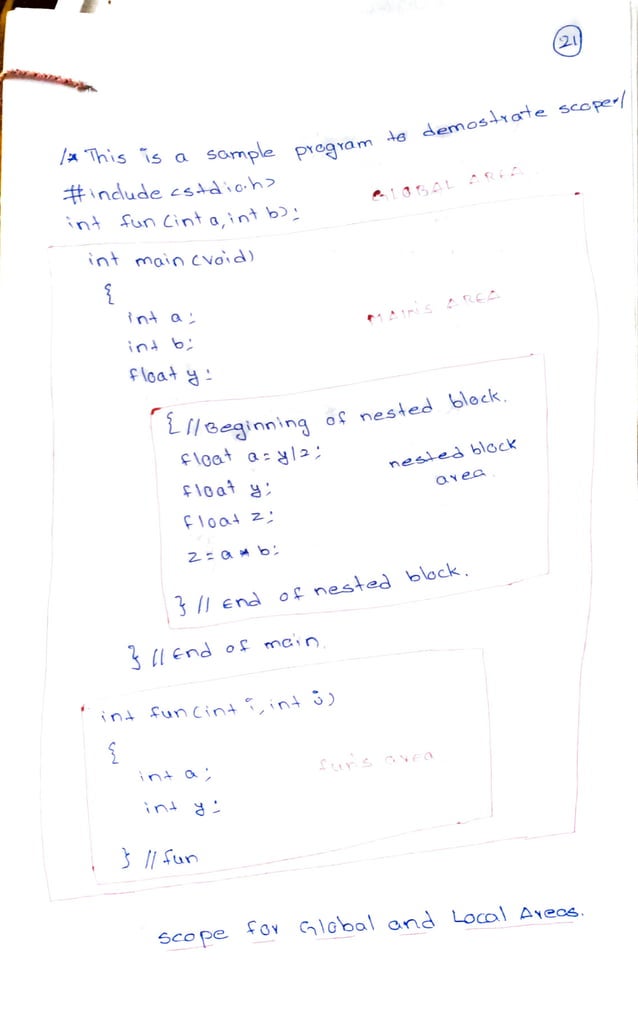 21
/* This is a sample program to demostrate scope*/
#include <stdio.h>
GLOBAL AREA.
int fun (int a, int b);
int main (void)
{
int a;
MAIN'S AREA
int b;
float y;
{ // Beginning of nested block.
float a = y/2;
nested block
area.
float y;
float z;
z = a * b;
} // End of nested block.
} // End of main.
int fun (int i, int j)
{
int a;
fun's area
int y;
} // fun
scope for Global and Local Areas.